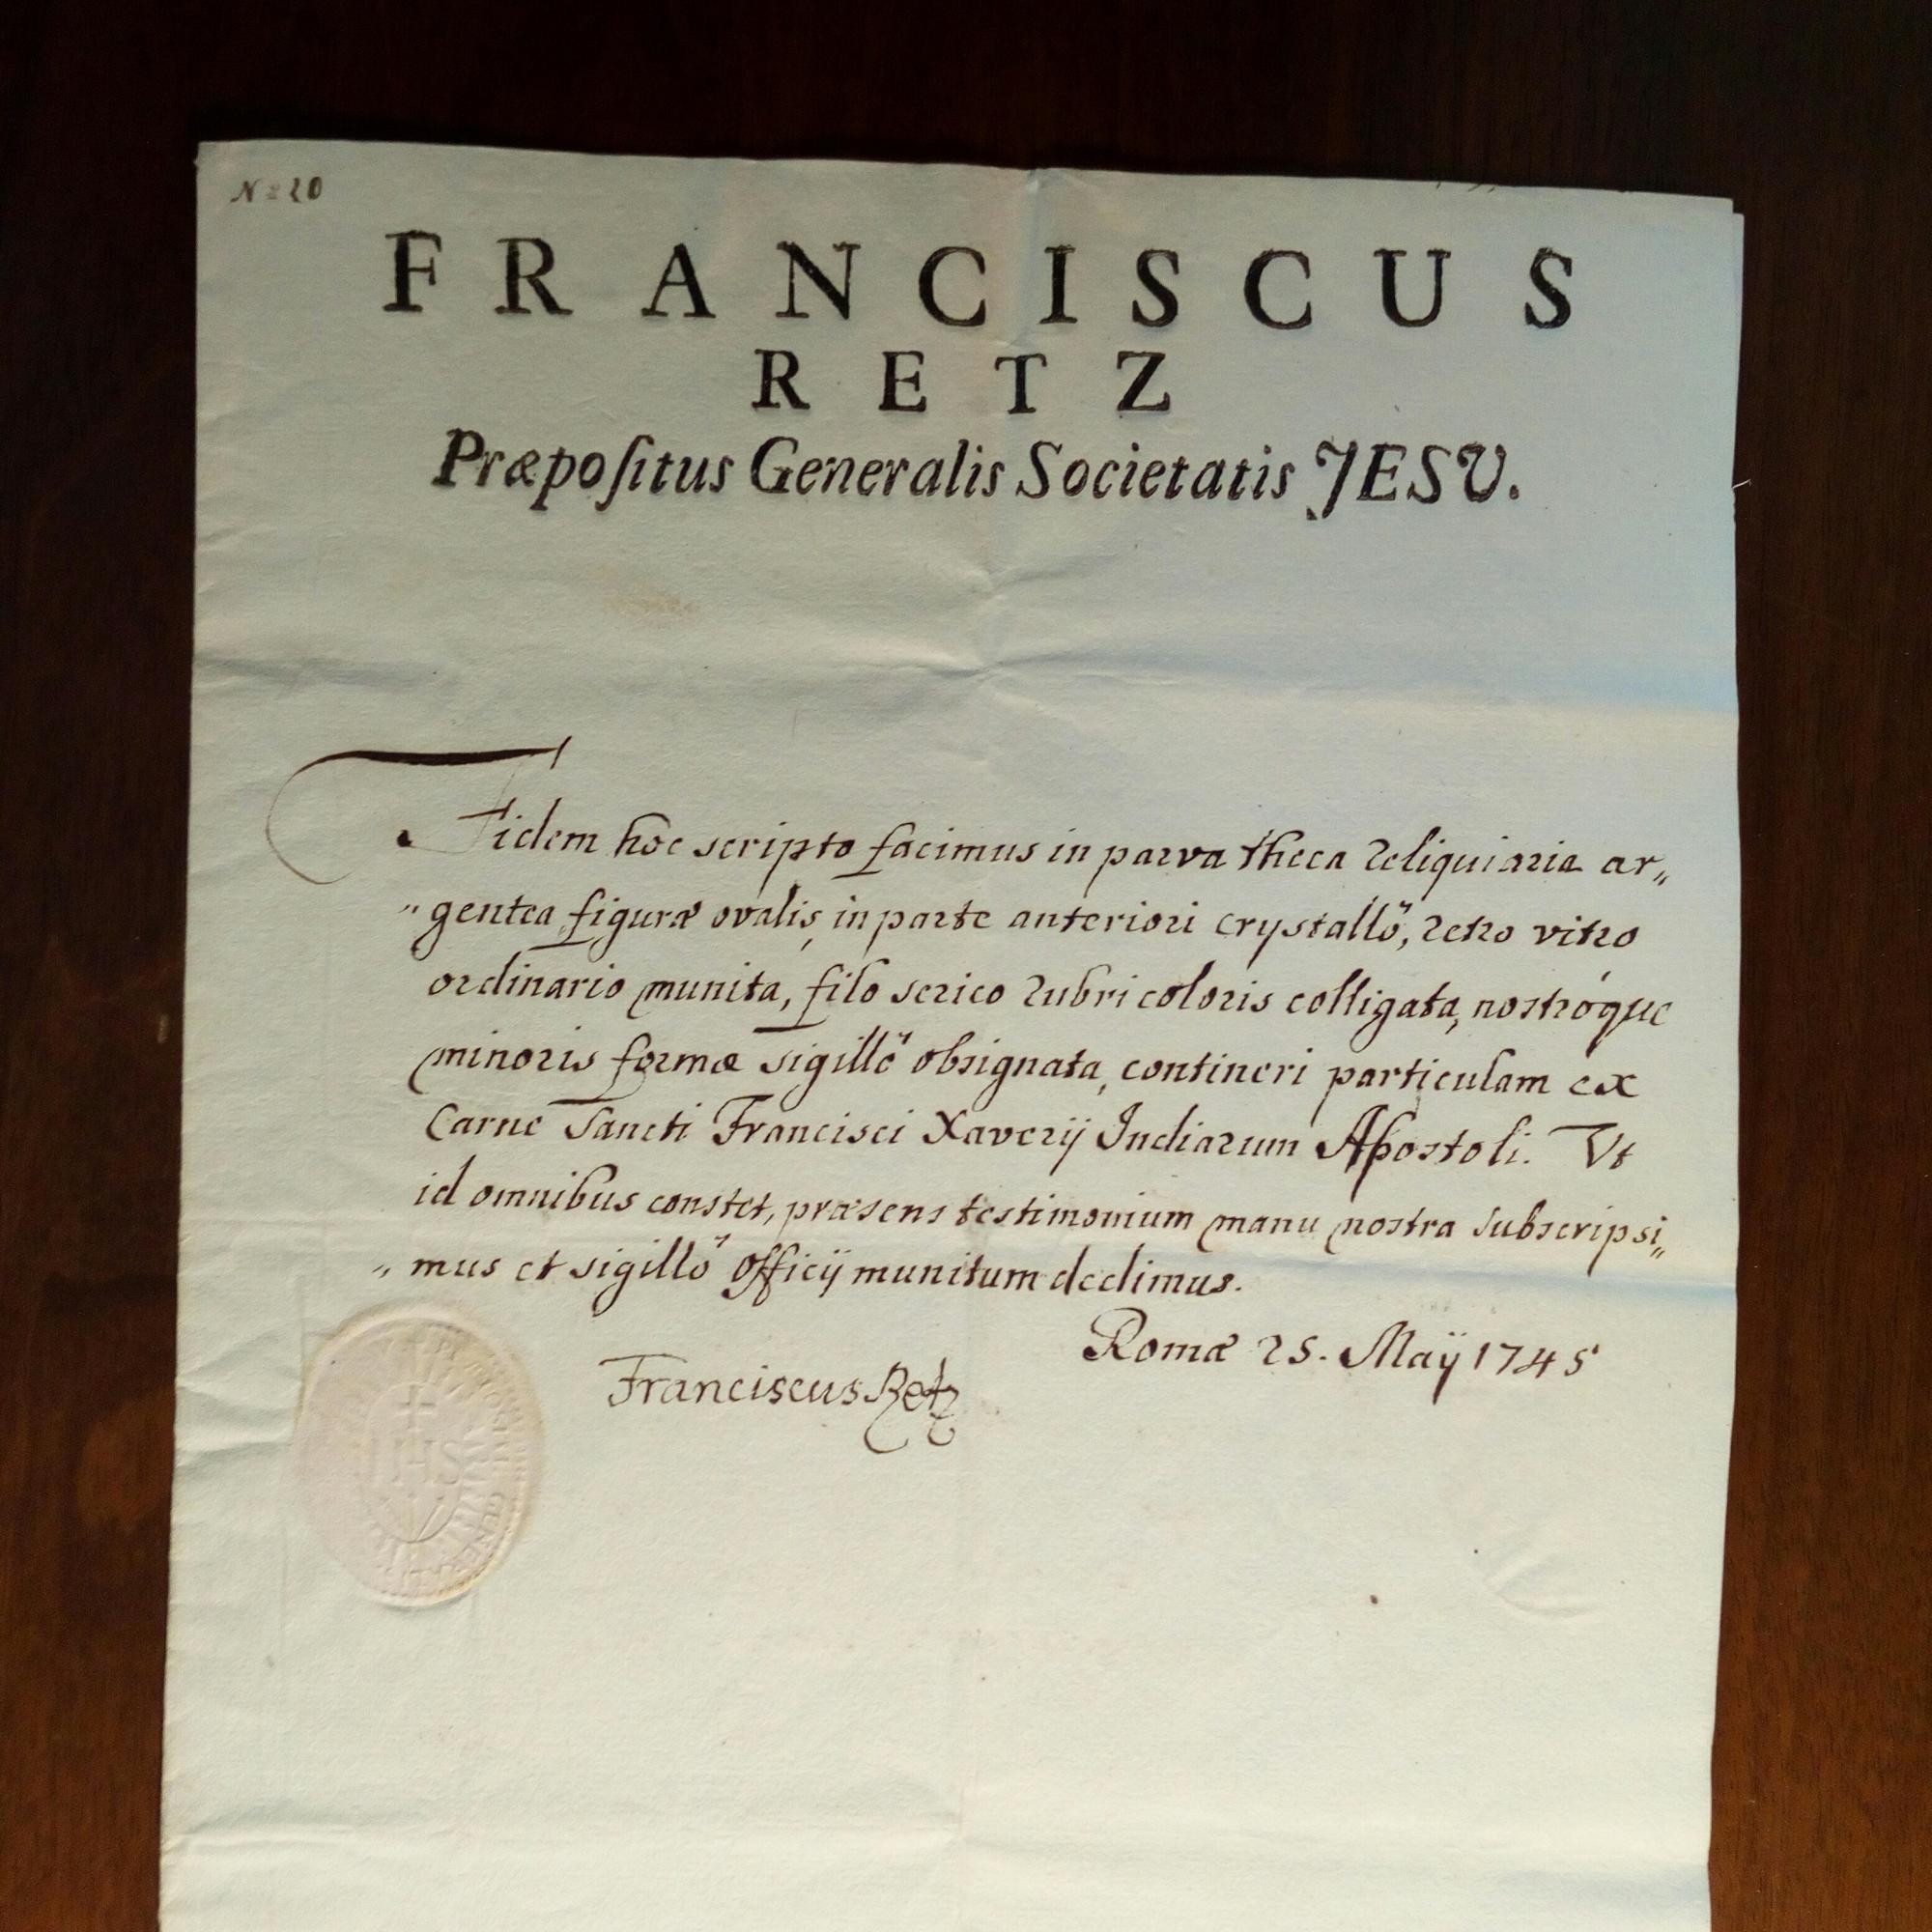 N: 20
FRANCISCUS
RETZ
Præpoſitus Generalis Societatis JESU.
Fidem hoc scripto facimus in parva theca Reliquiaria ar„
„gentea figuræ ovalis, in parte anteriori crystallô, retro vitro
ordinario munita, filo serico rubri coloris colligata, nostróque
minoris formæ sigillô obsignata, contineri particulam ex
Carne Sancti Francisci Xaverij Indiarum Apostoli. Vt
id omnibus constet, præsens testimonium manu nostra subscripsi„
„mus et sigillô Officij munitum dedimus.
Romæ 25. Maÿ 1745
Franciscus Retz
IHS